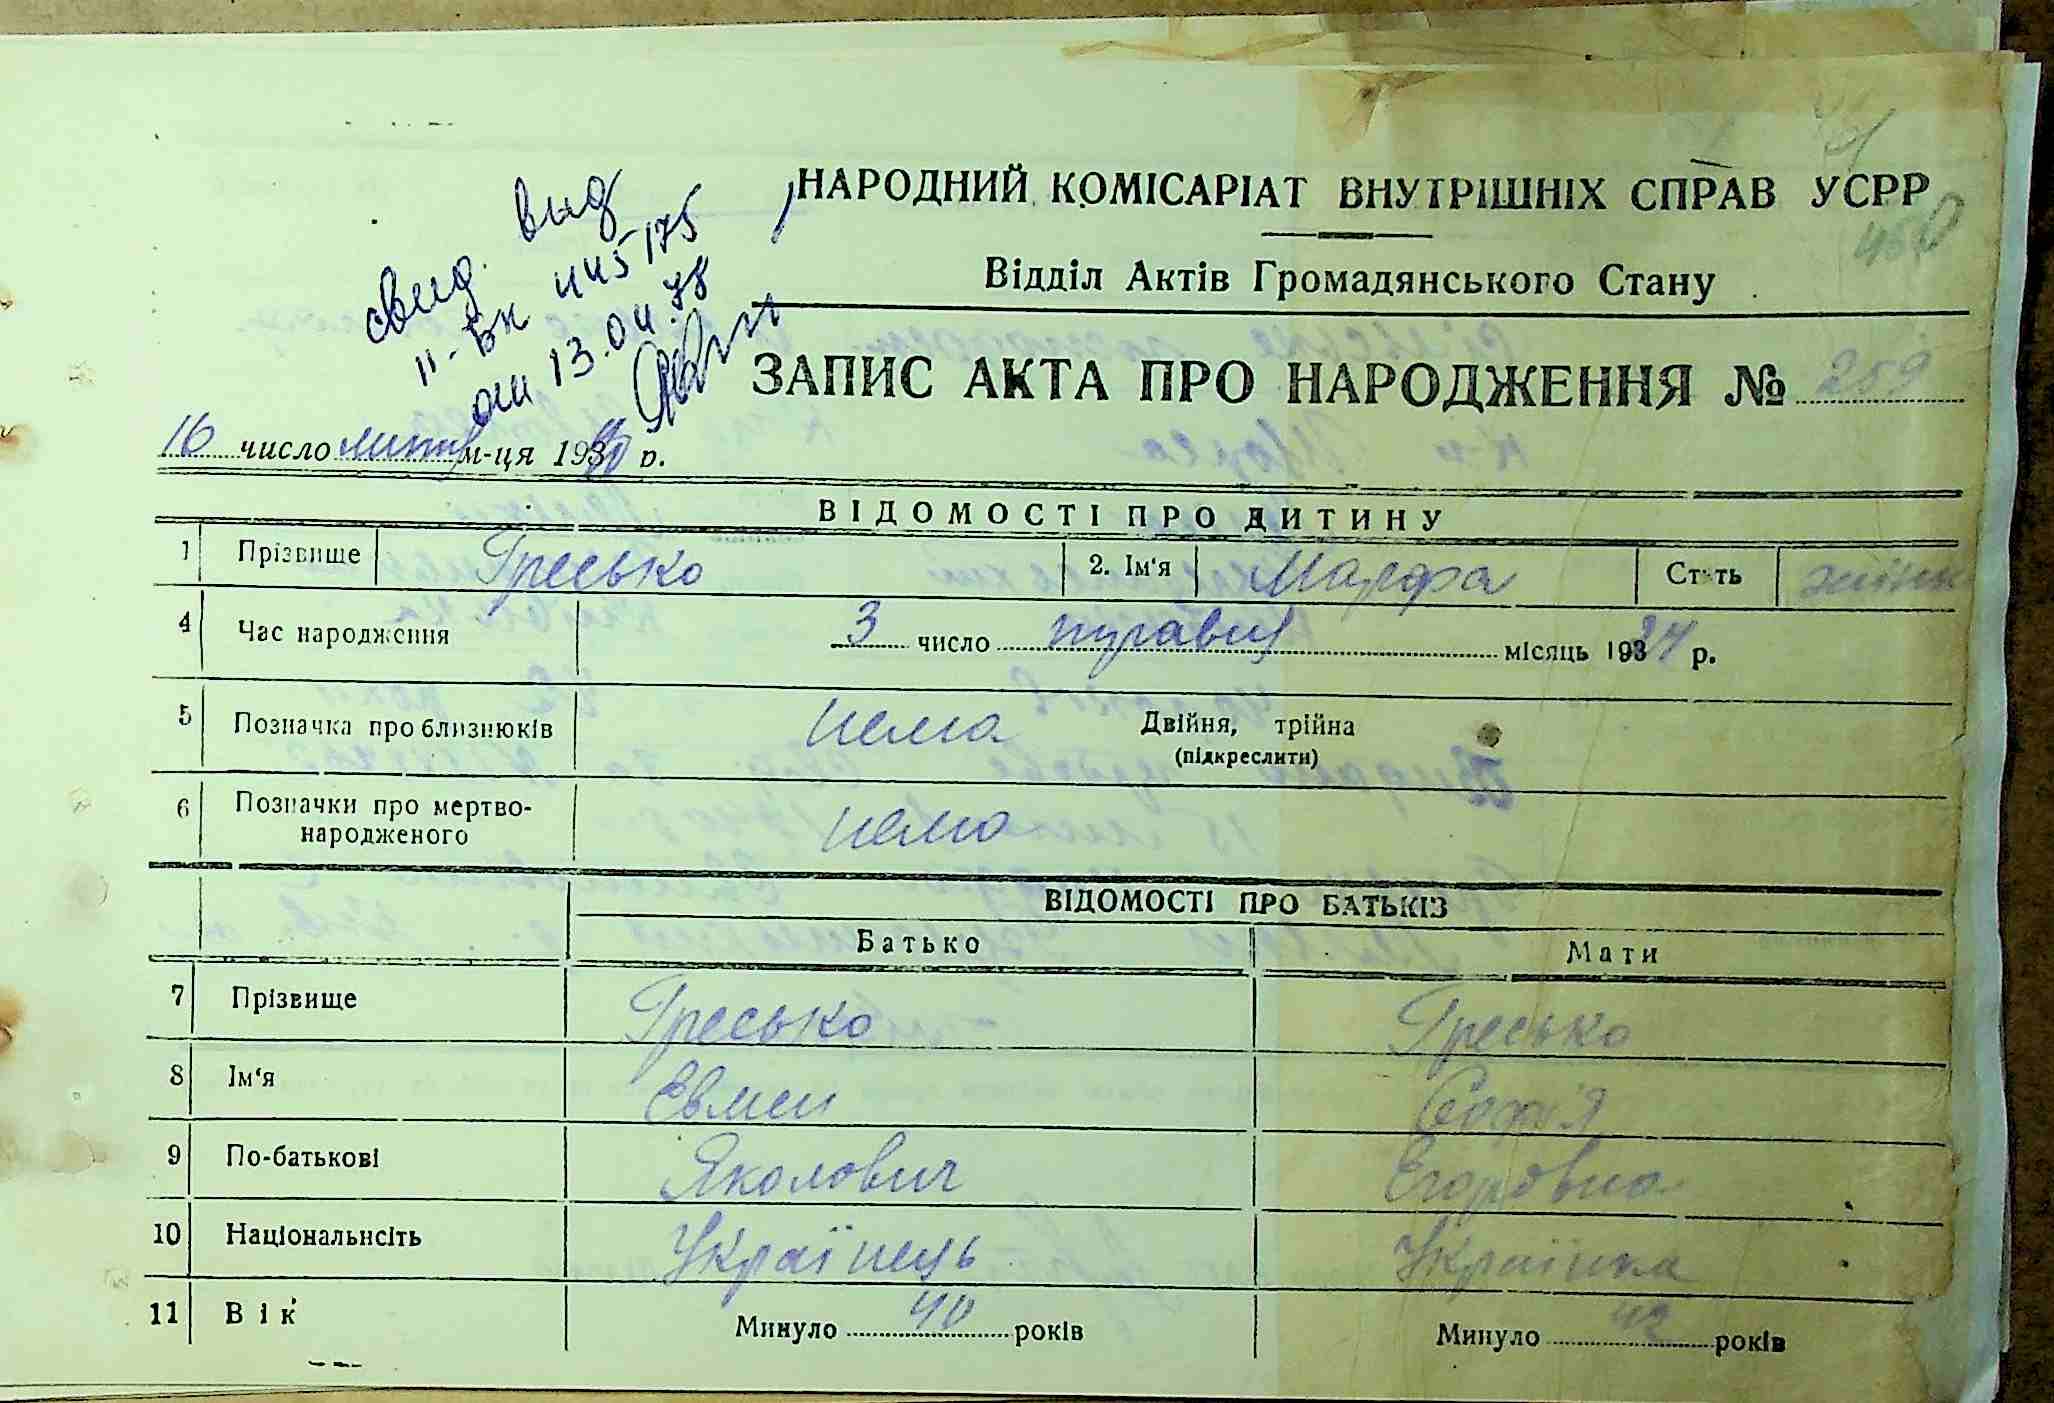 НАРОДНИЙ КОМІСАРІАТ ВНУТРІШНІХ СПРАВ УСРР
450
Відділ Актів Громадянського Стану
свид. выд
II-БК 445175
от 13.04.78
ЗАПИС АКТА ПРО НАРОДЖЕННЯ № 259
16 число липня м-ця 1940 р.
ВІДОМОСТІ ПРО ДИТИНУ
1 Прізвище Гресько 2. Ім'я Марфа Стать жіноч
4 Час народження 3 число травня місяць 1934 р.
5 Позначка про близнюків нема Двійня, трійна
(підкреслити)
6 Позначки про мертво-
народженого нема
ВІДОМОСТІ ПРО БАТЬКІВ
Батько Мати
7 Прізвище Гресько Гресько
8 Ім'я Євмен Софія
9 По-батькові Яколович Егоровна
10 Національнсіть Українець Українка
11 Вік Минуло 40 років Минуло 42 років